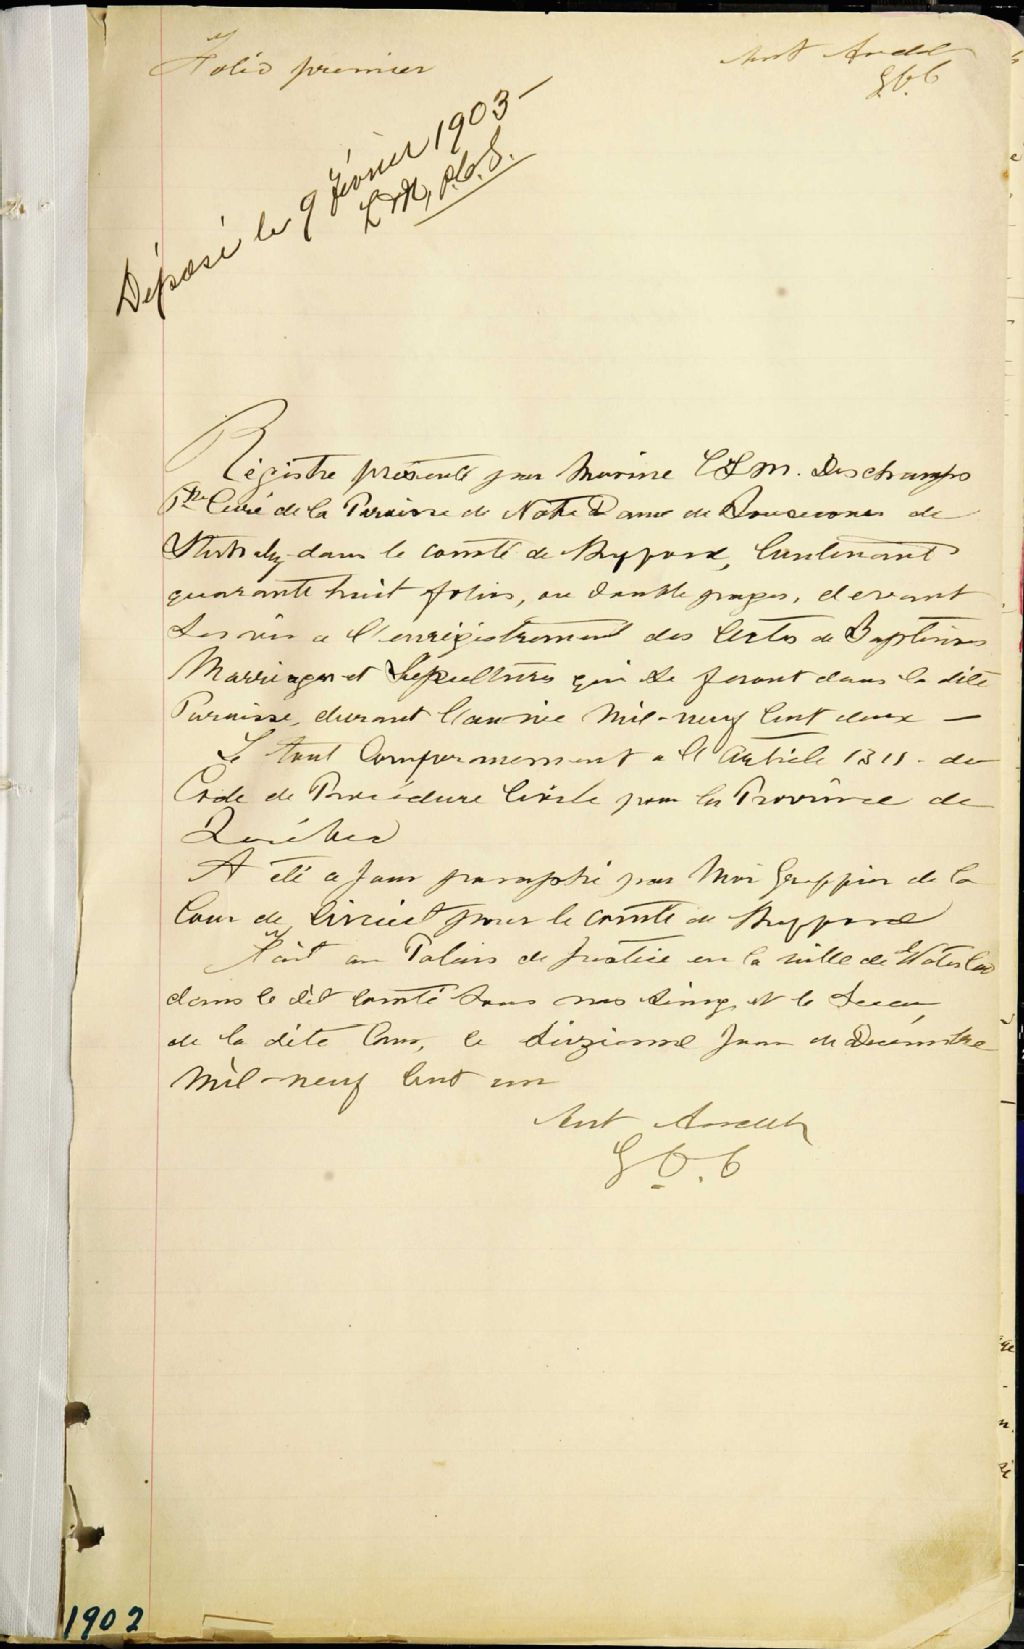 Folio premier
G.C.C
Déposé le 9 février 1903 -
L M, P.C.S.
Régistre présenté par Mosire C S M. Deschamps
Ptre Curé de la Paroisse de Notre Dame de Bonsecours de
Stukely dans le comté de Shefford, Contenant
quarante huit folios, ou double pages, devant
Servir a l'enrégistrement des Actes de Baptêmes
Marriages et Sepultures qui se feront dans la dite
Paroisse, durant l'année Mil-neuf Cent deux -
Le tout Comformement a l'Article 1311 - du
Code de Procédure Civile pour la Province de
Québec
A été a Jour paraphé par Moi Greffier de la
Cour de Circuit pour le comté de Shefford
Fait au Palais de Justice en la ville de Waterloo
dans le dit comté sous mes seing et le Sceau,
de la dite Cour, le dixieme Jour de Décembre
Mil-neuf Cent un
G C. C
1902